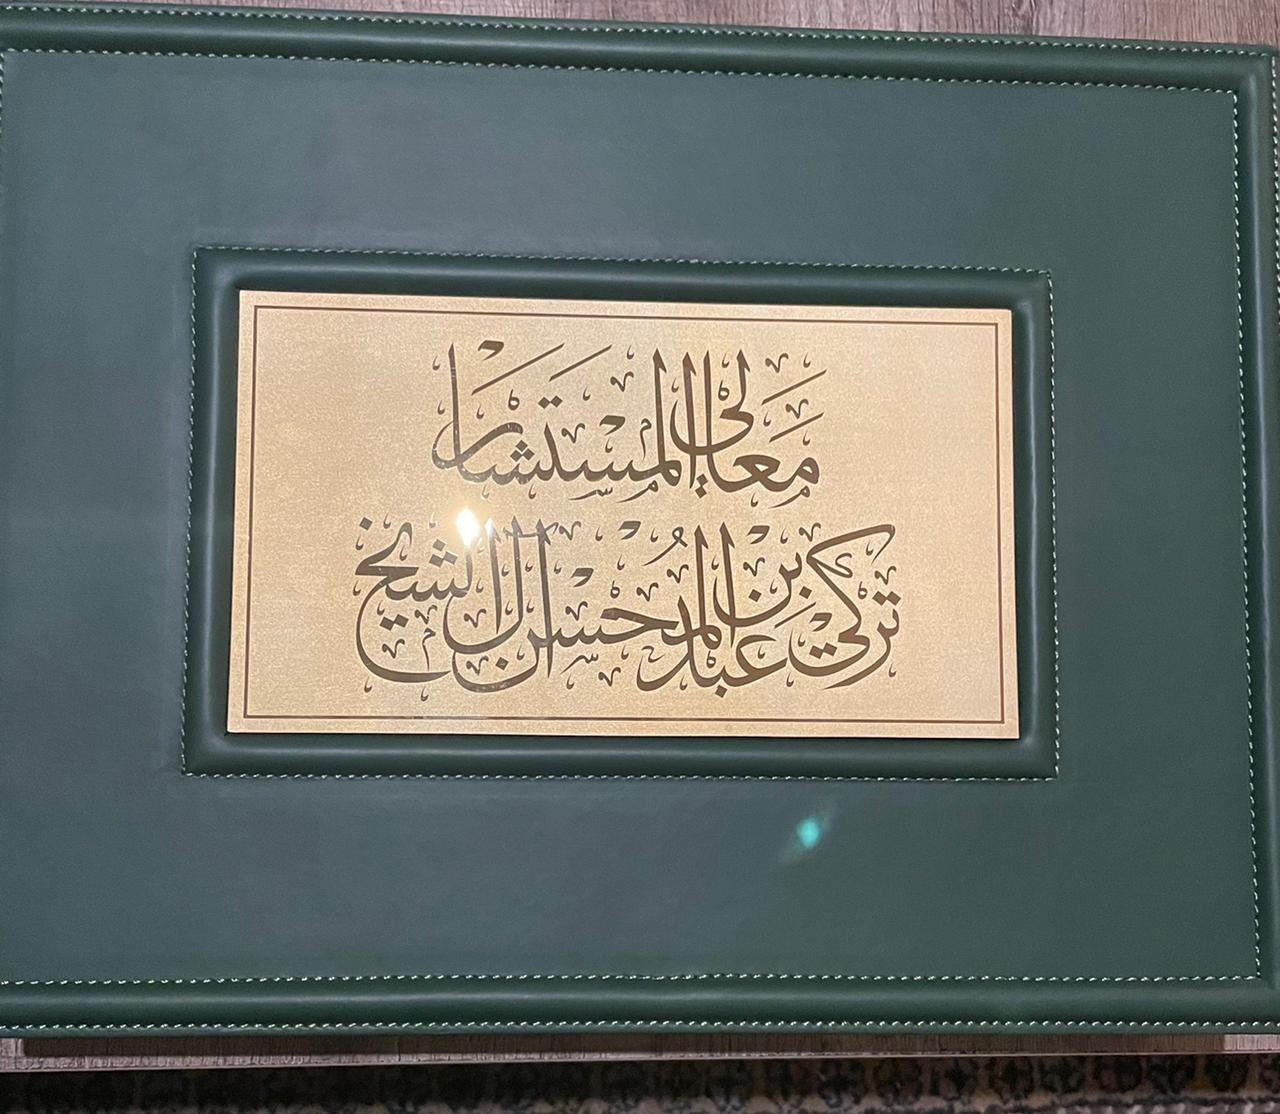 معالي المستشار
تركي بن عبدالمحسن آل الشيخ